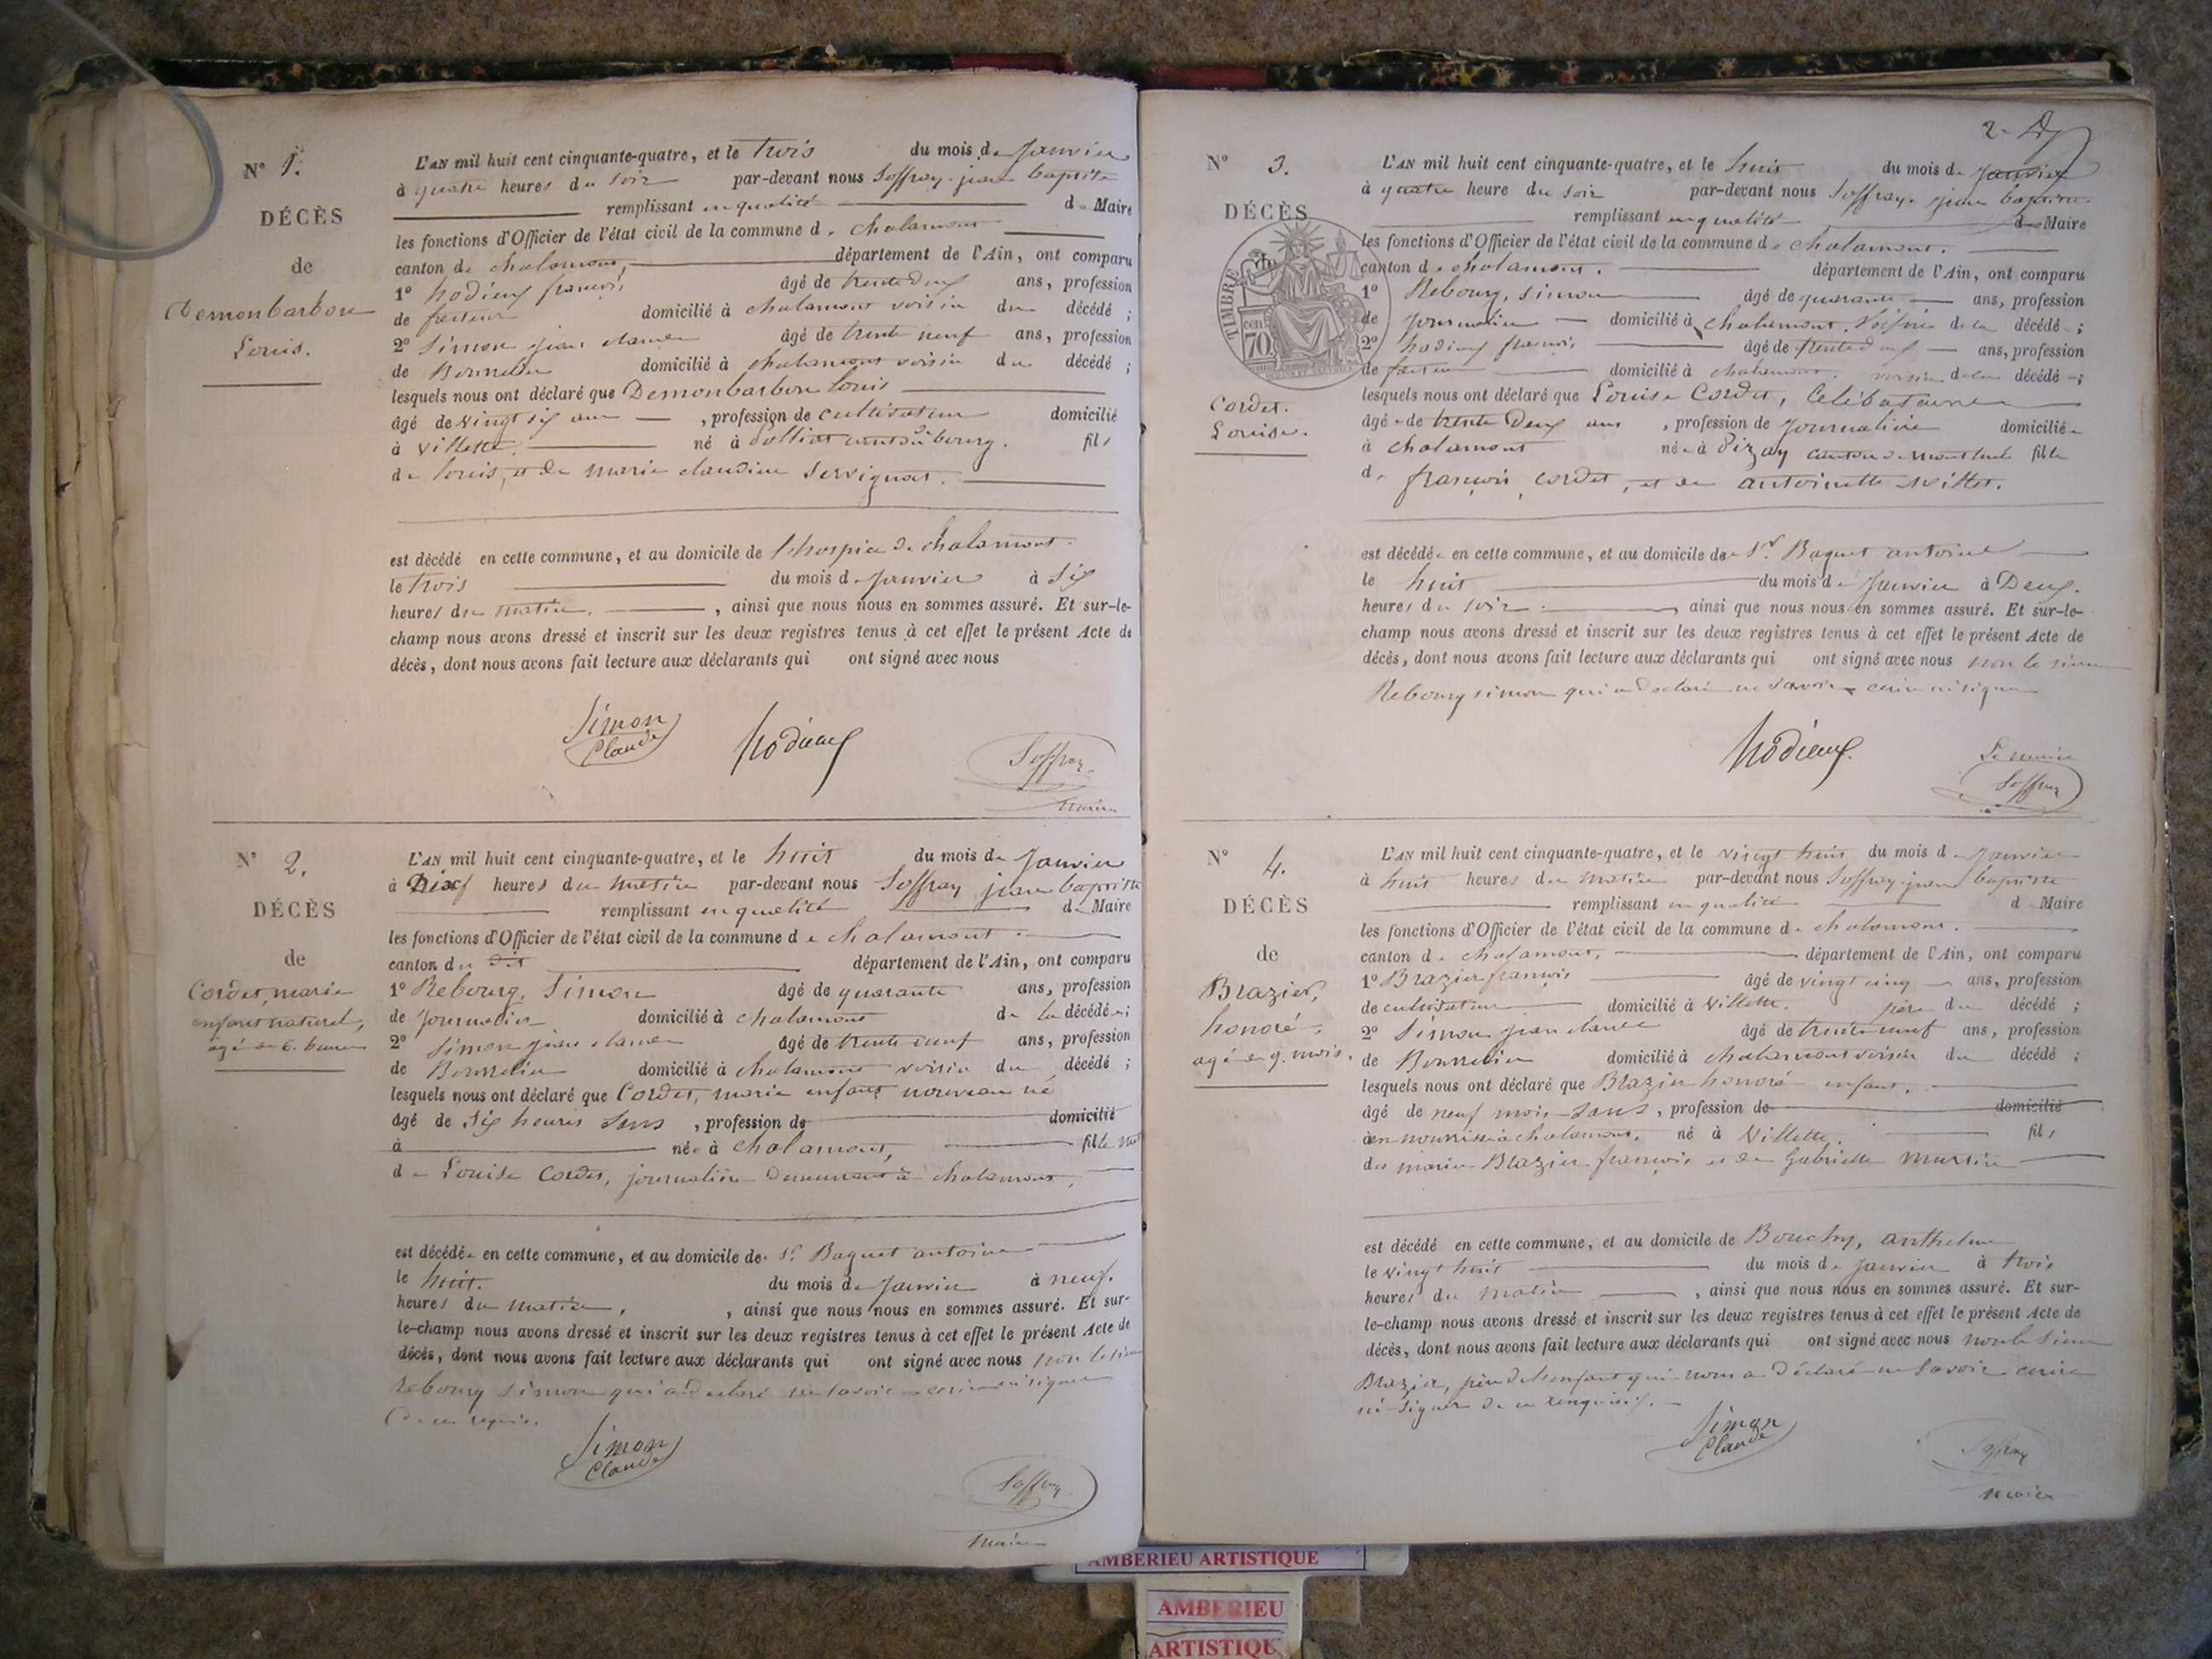 N° 1.
DÉCÈS
de
Demonbarbon
Louis.
L'AN mil huit cent cinquante-quatre, et le trois du mois de Janvier
à quatre heures du soir par-devant nous Soffray jean baptiste
remplissant en qualité de Maire
les fonctions d'Officier de l'état civil de la commune de chalamont
canton de chalamont, département de l'Ain, ont comparu
1° hodieux françois âgé de trente deux ans, profession
de facteur domicilié à chalamont voisin du décédé ;
2° Simon jean claude âgé de trente neuf ans, profession
de Bourrelier domicilié à chalamont voisin du décédé ;
lesquels nous ont déclaré que Demonbarbon louis
âgé de vingt six ans , profession de cultivateur domicilié
à Villette. né à Polliat canton de bourg. fils
de louis, et de marie claudine Servignat.
est décédé en cette commune, et au domicile de l'hospice de chalamont.
le trois du mois de Janvier à six
heures du matin. , ainsi que nous nous en sommes assuré. Et sur-le-
champ nous avons dressé et inscrit sur les deux registres tenus à cet effet le présent Acte de
décès, dont nous avons fait lecture aux déclarants qui ont signé avec nous
Simon
Claude
hodieux
Soffray
maire
N° 2.
DÉCÈS
de
Cordet, marie
enfant naturel,
agé de 6. heures
L'AN mil huit cent cinquante-quatre, et le huit du mois de Janvier
à Dix heures du matin par-devant nous Soffray jean baptiste
remplissant en qualité de Maire
les fonctions d'Officier de l'état civil de la commune de chalamont
canton du dit département de l'Ain, ont comparu
1° Rebourg, Simon âgé de quarante ans, profession
de journalier domicilié à chalamont de la décédée ;
2° Simon jean claude âgé de trente neuf ans, profession
de Bourrelier domicilié à chalamont voisin du décédé ;
lesquels nous ont déclaré que Cordet, marie enfant nouveau né
âgé de Six heures sans , profession de domicilié
à née à chalamont, fille
de Louise Cordet, journalière demeurant à chalamont,
est décédée en cette commune, et au domicile de Sr. Baquet antoine
le huit. du mois de Janvier à neuf.
heures du matin. , ainsi que nous nous en sommes assuré. Et sur-
le-champ nous avons dressé et inscrit sur les deux registres tenus à cet effet le présent Acte de
décès, dont nous avons fait lecture aux déclarants qui ont signé avec nous non le sieur
Rebourg simon qui a déclaré ne savoir écrire ni signer
De ce requis.
Simon
Claude
Soffray
maire
2
N° 3.
DÉCÈS
de
TIMBRE
cen
70
Cordet.
Louise.
L'AN mil huit cent cinquante-quatre, et le huit du mois de Janvier
à quatre heure du soir par-devant nous Soffray. jean baptiste
remplissant en qualité de Maire
les fonctions d'Officier de l'état civil de la commune de chalamont.
canton de chalamont. département de l'Ain, ont comparu
1° Rebourg, simon âgé de quarante ans, profession
de journalier domicilié à chalamont. Voisin de la décédé ;
2° hodieux françois âgé de trente deux ans, profession
de facteur domicilié à chalamont. voisin de la décédé ;
lesquels nous ont déclaré que Louise Cordet, Célibataire
âgée de trente Deux ans , profession de journalière domiciliée
à chalamont née à Pizay canton de montluel fille
de françois cordet, et de antoinette millet.
est décédée en cette commune, et au domicile de Sr. Baquet antoine
le huit du mois de Janvier à Deux.
heures du soir. ainsi que nous nous en sommes assuré. Et sur-le-
champ nous avons dressé et inscrit sur les deux registres tenus à cet effet le présent Acte de
décès, dont nous avons fait lecture aux déclarants qui ont signé avec nous non le sieur
Rebourg simon qui a déclaré ne savoir écrire ni signer
hodieux.
Le maire
Soffray
N° 4.
DÉCÈS
de
Brazier,
honoré.
agé de 9. mois.
L'AN mil huit cent cinquante-quatre, et le vingt huit du mois de Janvier
à huit heures du matin par-devant nous Soffray jean baptiste
remplissant en qualité de Maire
les fonctions d'Officier de l'état civil de la commune de chalamont.
canton de chalamont, département de l'Ain, ont comparu
1° Brazier françois âgé de vingt cinq ans, profession
de cultivateur domicilié à Villette. père du décédé ;
2° Simon jean claude âgé de trente neuf ans, profession
de Bourrelier domicilié à chalamont voisin du décédé ;
lesquels nous ont déclaré que Brazier honoré enfant.
âgé de neuf mois sans , profession de domicilié
à en nourrice à chalamont. né à Villette. fils
des mariés Brazier françois et de Gabrielle Martin
est décédé en cette commune, et au domicile de Bouchy, anthelme
le vingt huit du mois de Janvier à trois
heures du matin , ainsi que nous nous en sommes assuré. Et sur-
le-champ nous avons dressé et inscrit sur les deux registres tenus à cet effet le présent Acte de
décès, dont nous avons fait lecture aux déclarants qui ont signé avec nous non le sieur
Brazier, père de l'enfant qui nous a déclaré ne savoir écrire
ni signer de ce
Simon
Claude
Soffray
maire
AMBERIEU ARTISTIQUE
AMBERIEU
ARTISTIQU